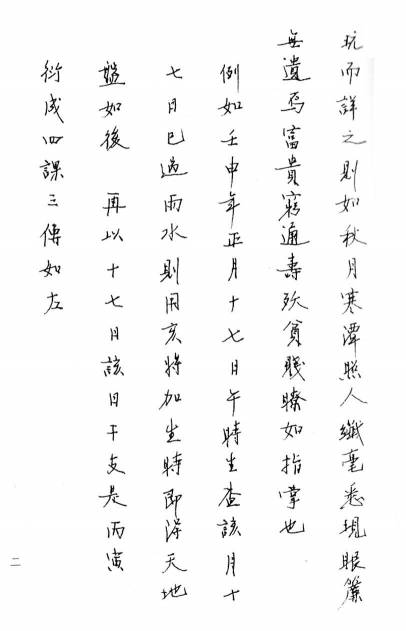 玩而詳之則如秋月寒潭照人纖毫悉現眼簾
無遺焉富貴窮通壽殀貧賤瞭如指掌也
例如壬申年正月十七日午時生查該月十
七日已過雨水則用亥將加生時即得天地
盤如後　再以十七日該日干支是丙寅
衍成四課三傳如左
二